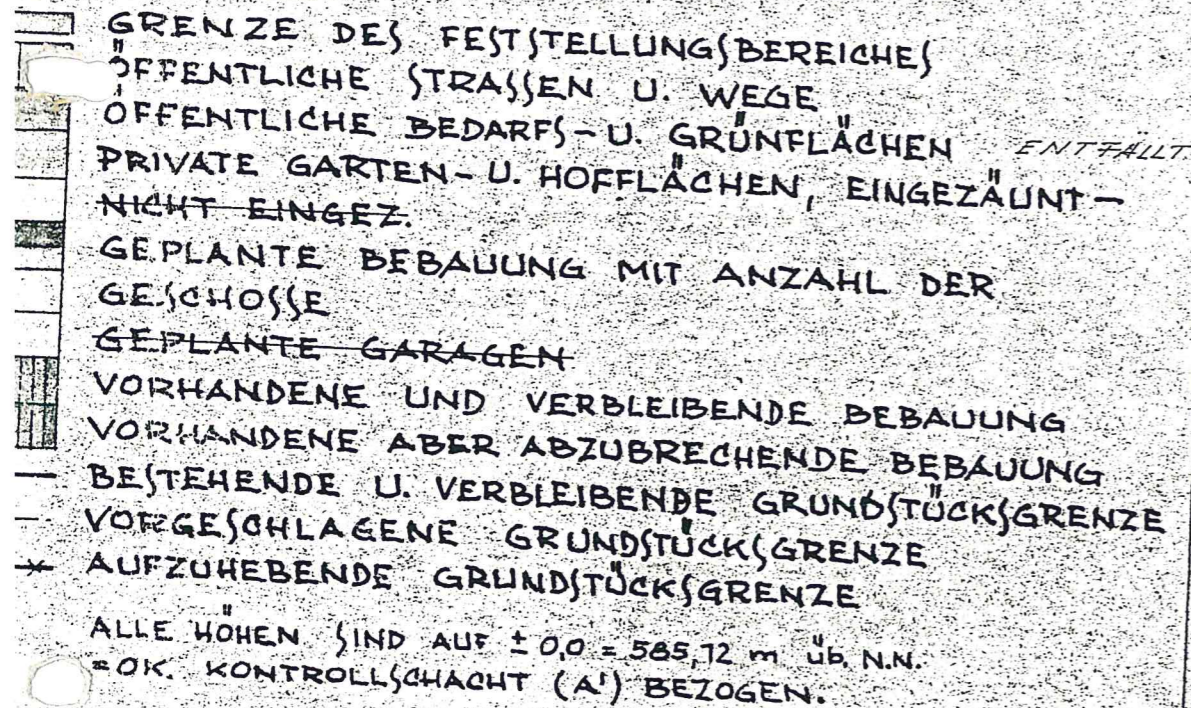 GRENZE DES FESTSTELLUNGSBEREICHES
ÖFFENTLICHE STRASSEN U. WEGE
ÖFFENTLICHE BEDARFS-U. GRÜNFLÄCHEN ENTFÄLLT
PRIVATE GARTEN-U. HOFFLÄCHEN, EINGEZÄUNT-
NICHT EINGEZ.
GEPLANTE BEBAUUNG MIT ANZAHL DER
GESCHOSSE
GEPLANTE GARAGEN
VORHANDENE UND VERBLEIBENDE BEBAUUNG
VORHANDENE ABER ABZUBRECHENDE BEBAUUNG
BESTEHENDE U. VERBLEIBENDE GRUNDSTÜCKSGRENZE
VORGESCHLAGENE GRUNDSTÜCKSGRENZE
AUFZUHEBENDE GRUNDSTÜCKSGRENZE
ALLE HÖHEN SIND AUF ± 0,0 = 585,72 m üb. N.N.
=OK. KONTROLLSCHACHT (A') BEZOGEN.